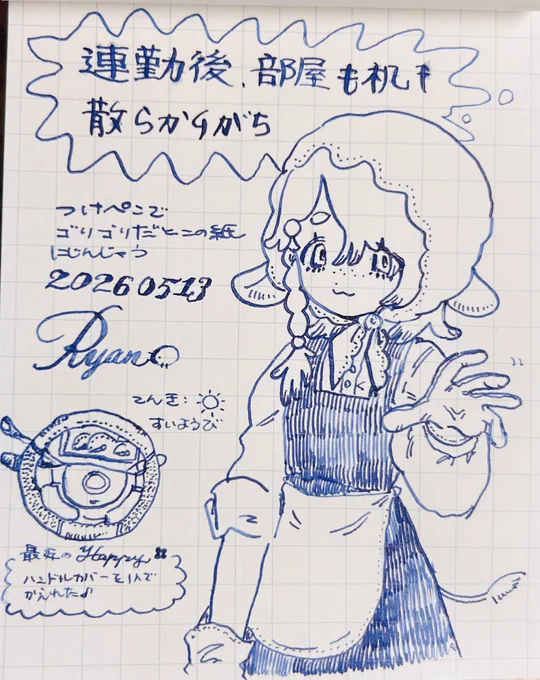 連勤後、部屋も机も
散らかりがち
つけペンで
ゴリゴリだとこの紙
にじんじゃう
20260513
Ryan
てんき：
すいようび
最近のHappy
ハンドルカバーを1人で
かえれた♪